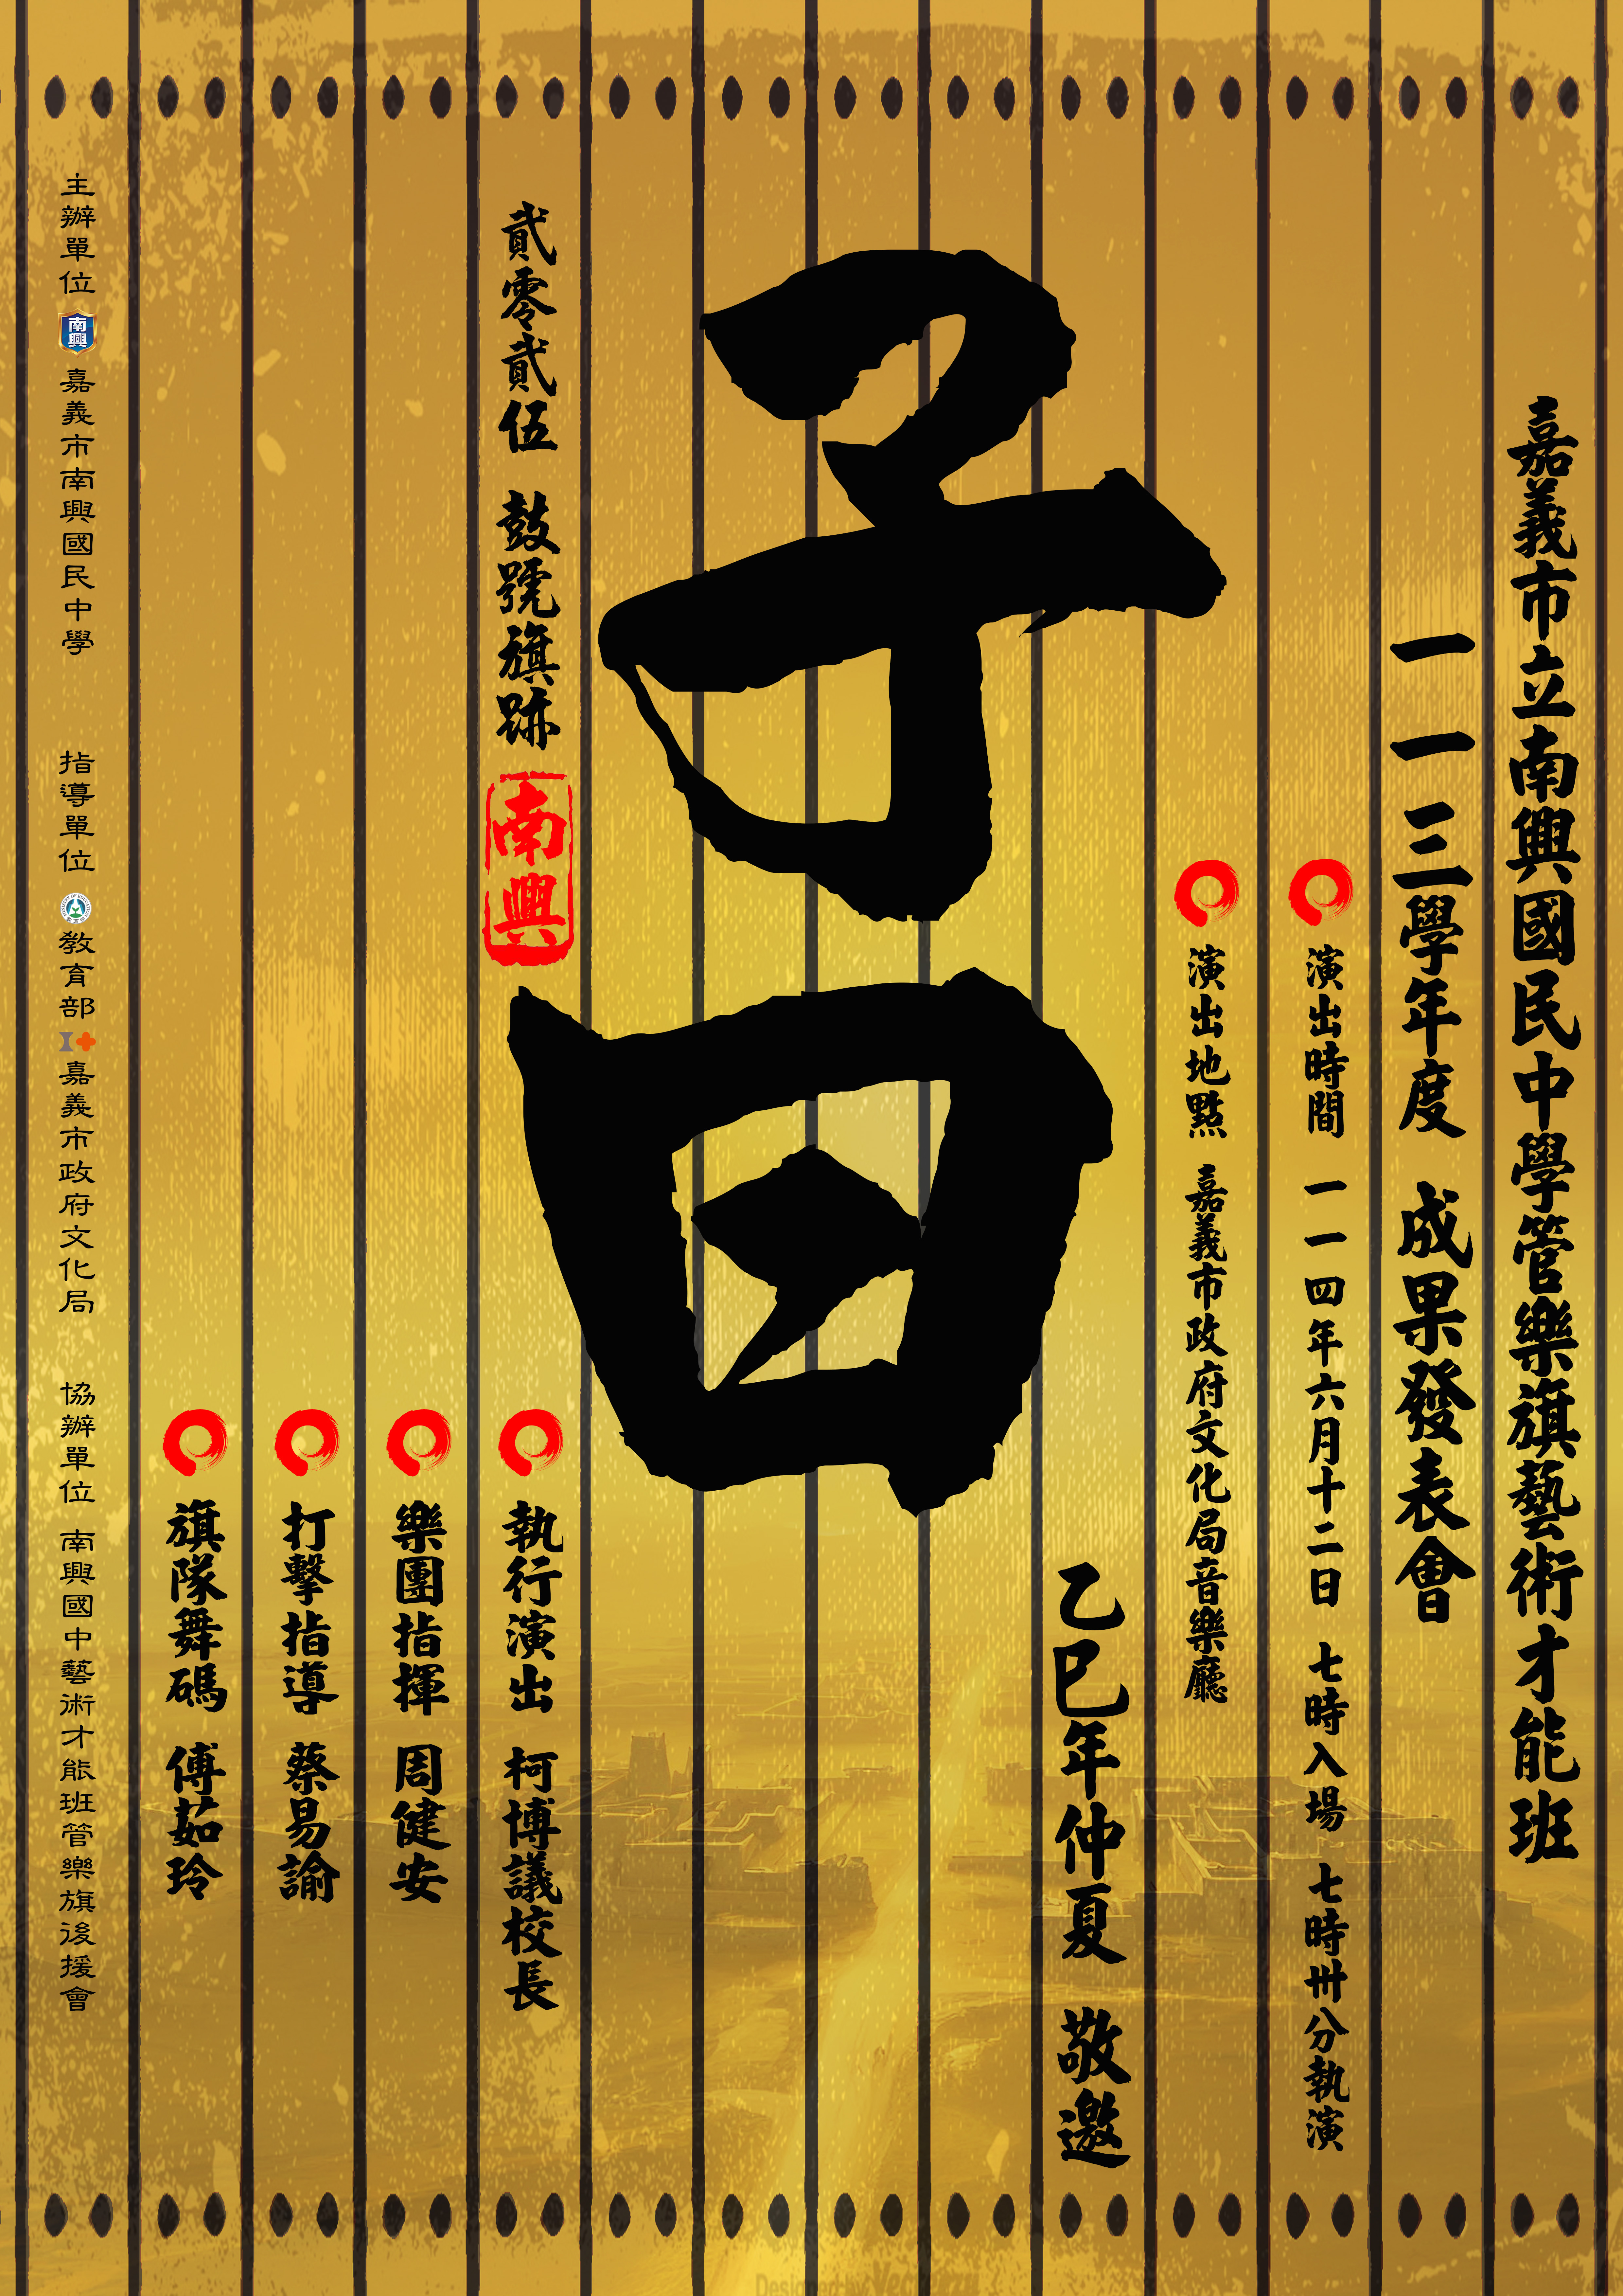 嘉義市立南興國民中學管樂旗藝術才能班
一一三學年度 成果發表會
演出時間 一一四年六月十二日 七時入場 七時卅分執演
演出地點 嘉義市政府文化局音樂廳
乙巳年仲夏 敬邀
子曰
貳零貳伍 鼓號旗跡
南興
執行演出 柯博議校長
樂團指揮 周健安
打擊指導 蔡易諭
旗隊舞碼 傅茹玲
主辦單位 南興 嘉義市南興國民中學 指導單位 教育部 嘉義市政府文化局 協辦單位 南興國中藝術才能班管樂旗後援會